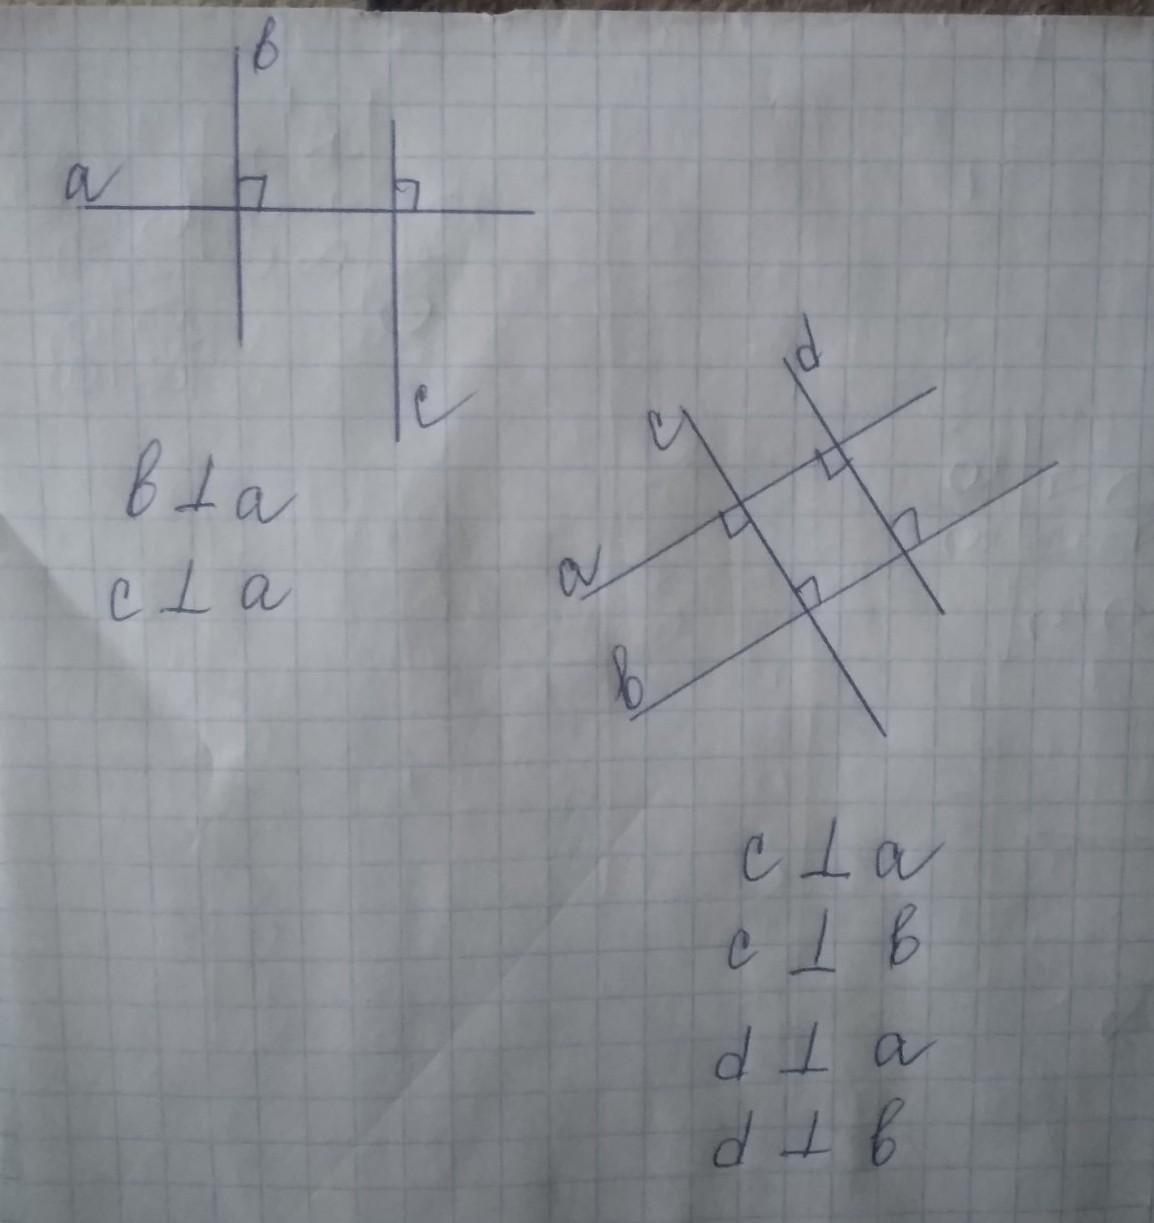 b
a
c
b ⊥ a
c ⊥ a
d
c
a
b
c ⊥ a
c ⊥ b
d ⊥ a
d ⊥ b